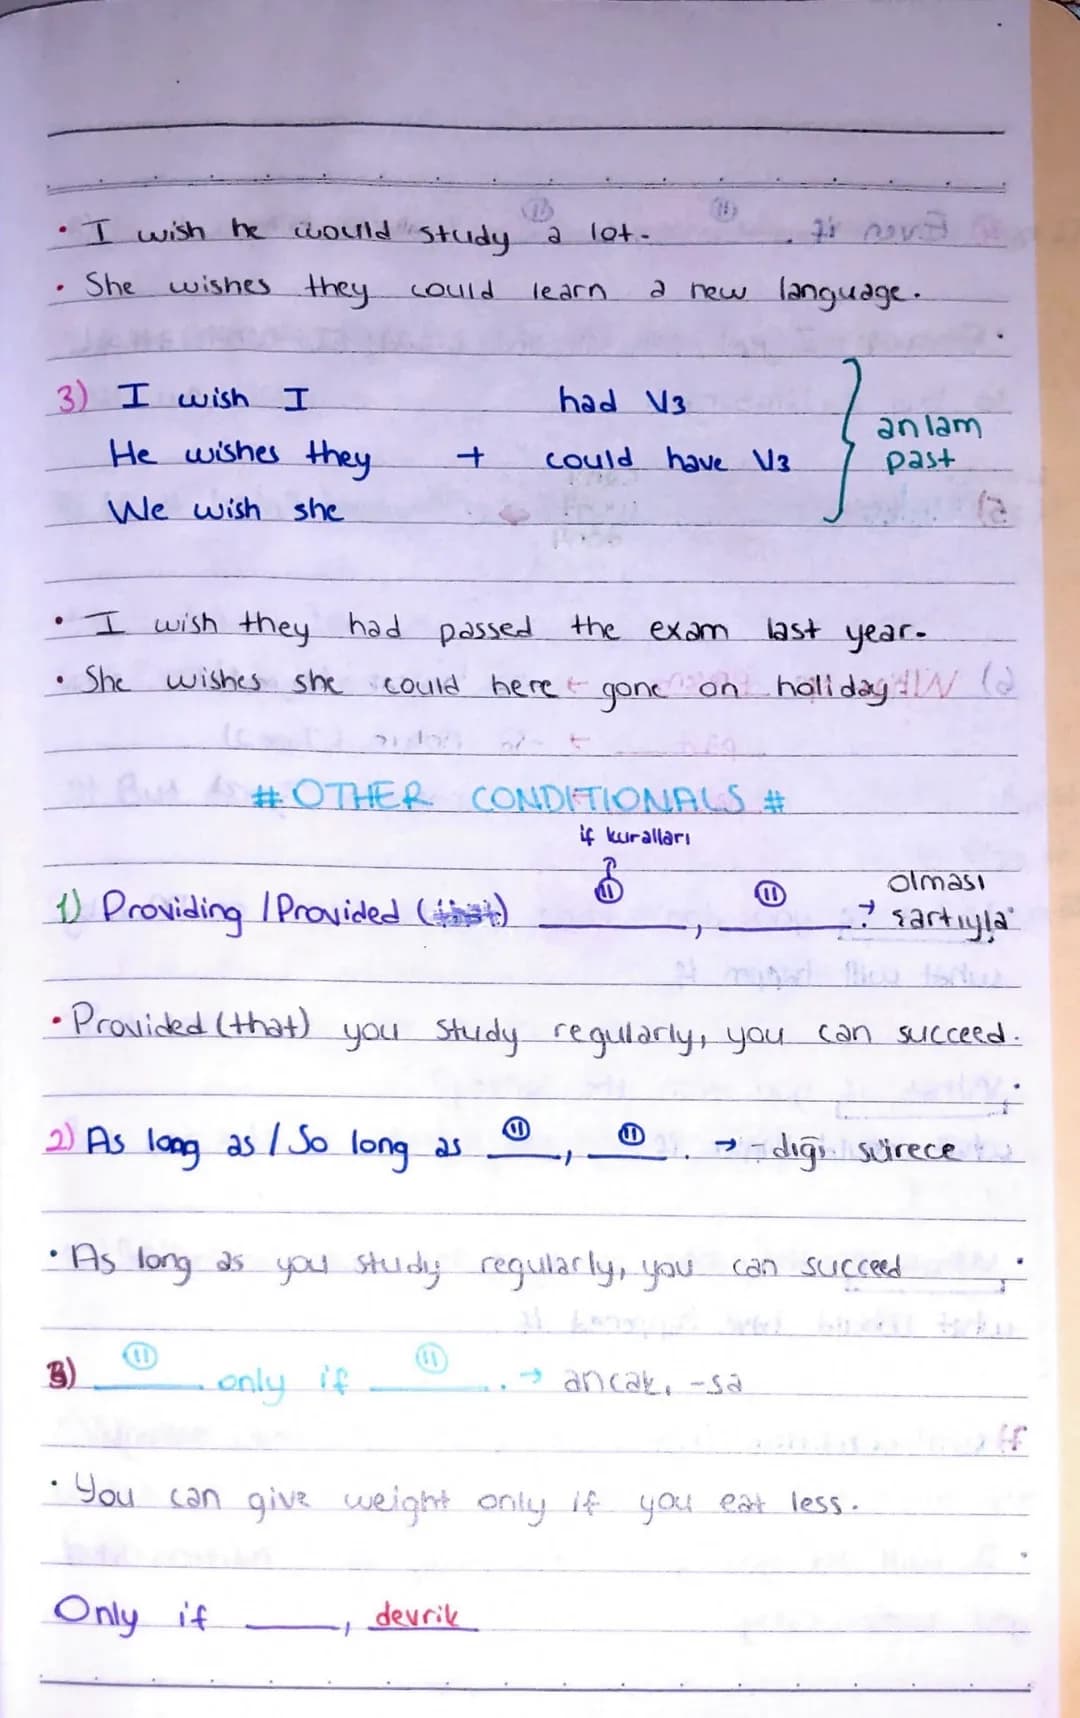 • I wish he would study a lot.
• She wishes they could learn a new language.
3) I wish I had V3
He wishes they + could have V3
We wish she
} anlam past
• I wish they had passed the exam last year.
• She wishes she could here gone on holiday
# OTHER CONDITIONALS #
if kuralları
1) Providing / Provided (that) ____, ____. → olması şartıyla
• Provided (that) you study regularly, you can succeed.
2) As long as / So long as ____, ____. → -dığı sürece
• As long as you study regularly, you can succeed
3) ____ only if ____. → ancak, -sa
• You can give weight only if you eat less.
Only if ____, devrik